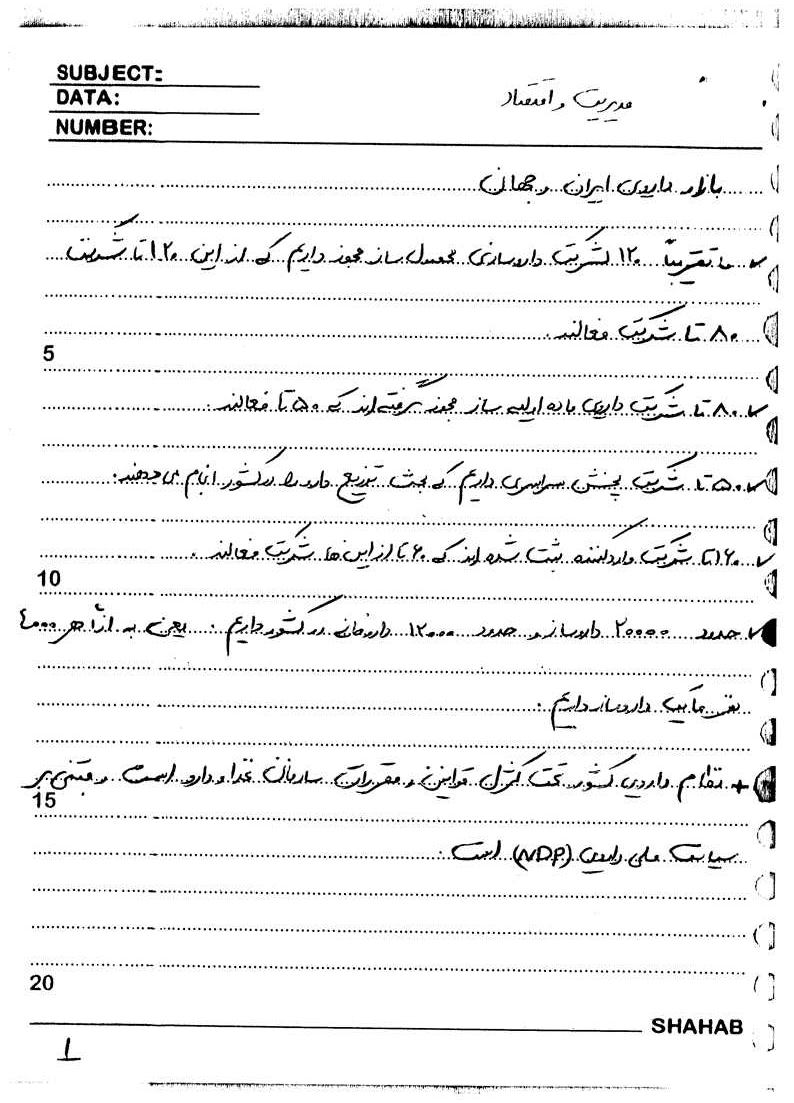 SUBJECT:
DATA:
NUMBER:
مدیریت و اقتصاد
بازار دارویی ایران و جهان
✓ ما تقریباً ۱۲۰ شرکت داروسازی محصول ساز مجوز داریم که از این ۱۲۰ تا شرکت
۸۰ تا شرکت فعالند.
5
✓ ۸۰ تا شرکت داریم ماده اولیه ساز مجوز گرفته اند که ۵۰ تا فعالند.
✓ ۵۰ تا شرکت پخش سراسری داریم که بحث توزیع دارو را در کشور انجام می دهند.
✓ ۱۶۰ تا شرکت واردکننده ثبت شده اند که ۶۰ تا از این ها شرکت فعالند.
10
✓ حدود ۲۰۰۰۰ داروساز و حدود ۱۲۰۰۰ داروخانه در کشور داریم. یعنی به ازا هر ۴۰۰۰
نفر ما یک داروساز داریم.
+ نظام دارویی کشور تحت کنترل قوانین و مقررات سازمان غذا و دارو است و مبتنی بر
15
سیاست ملی دارویی (NDP) است.
20
SHAHAB
1